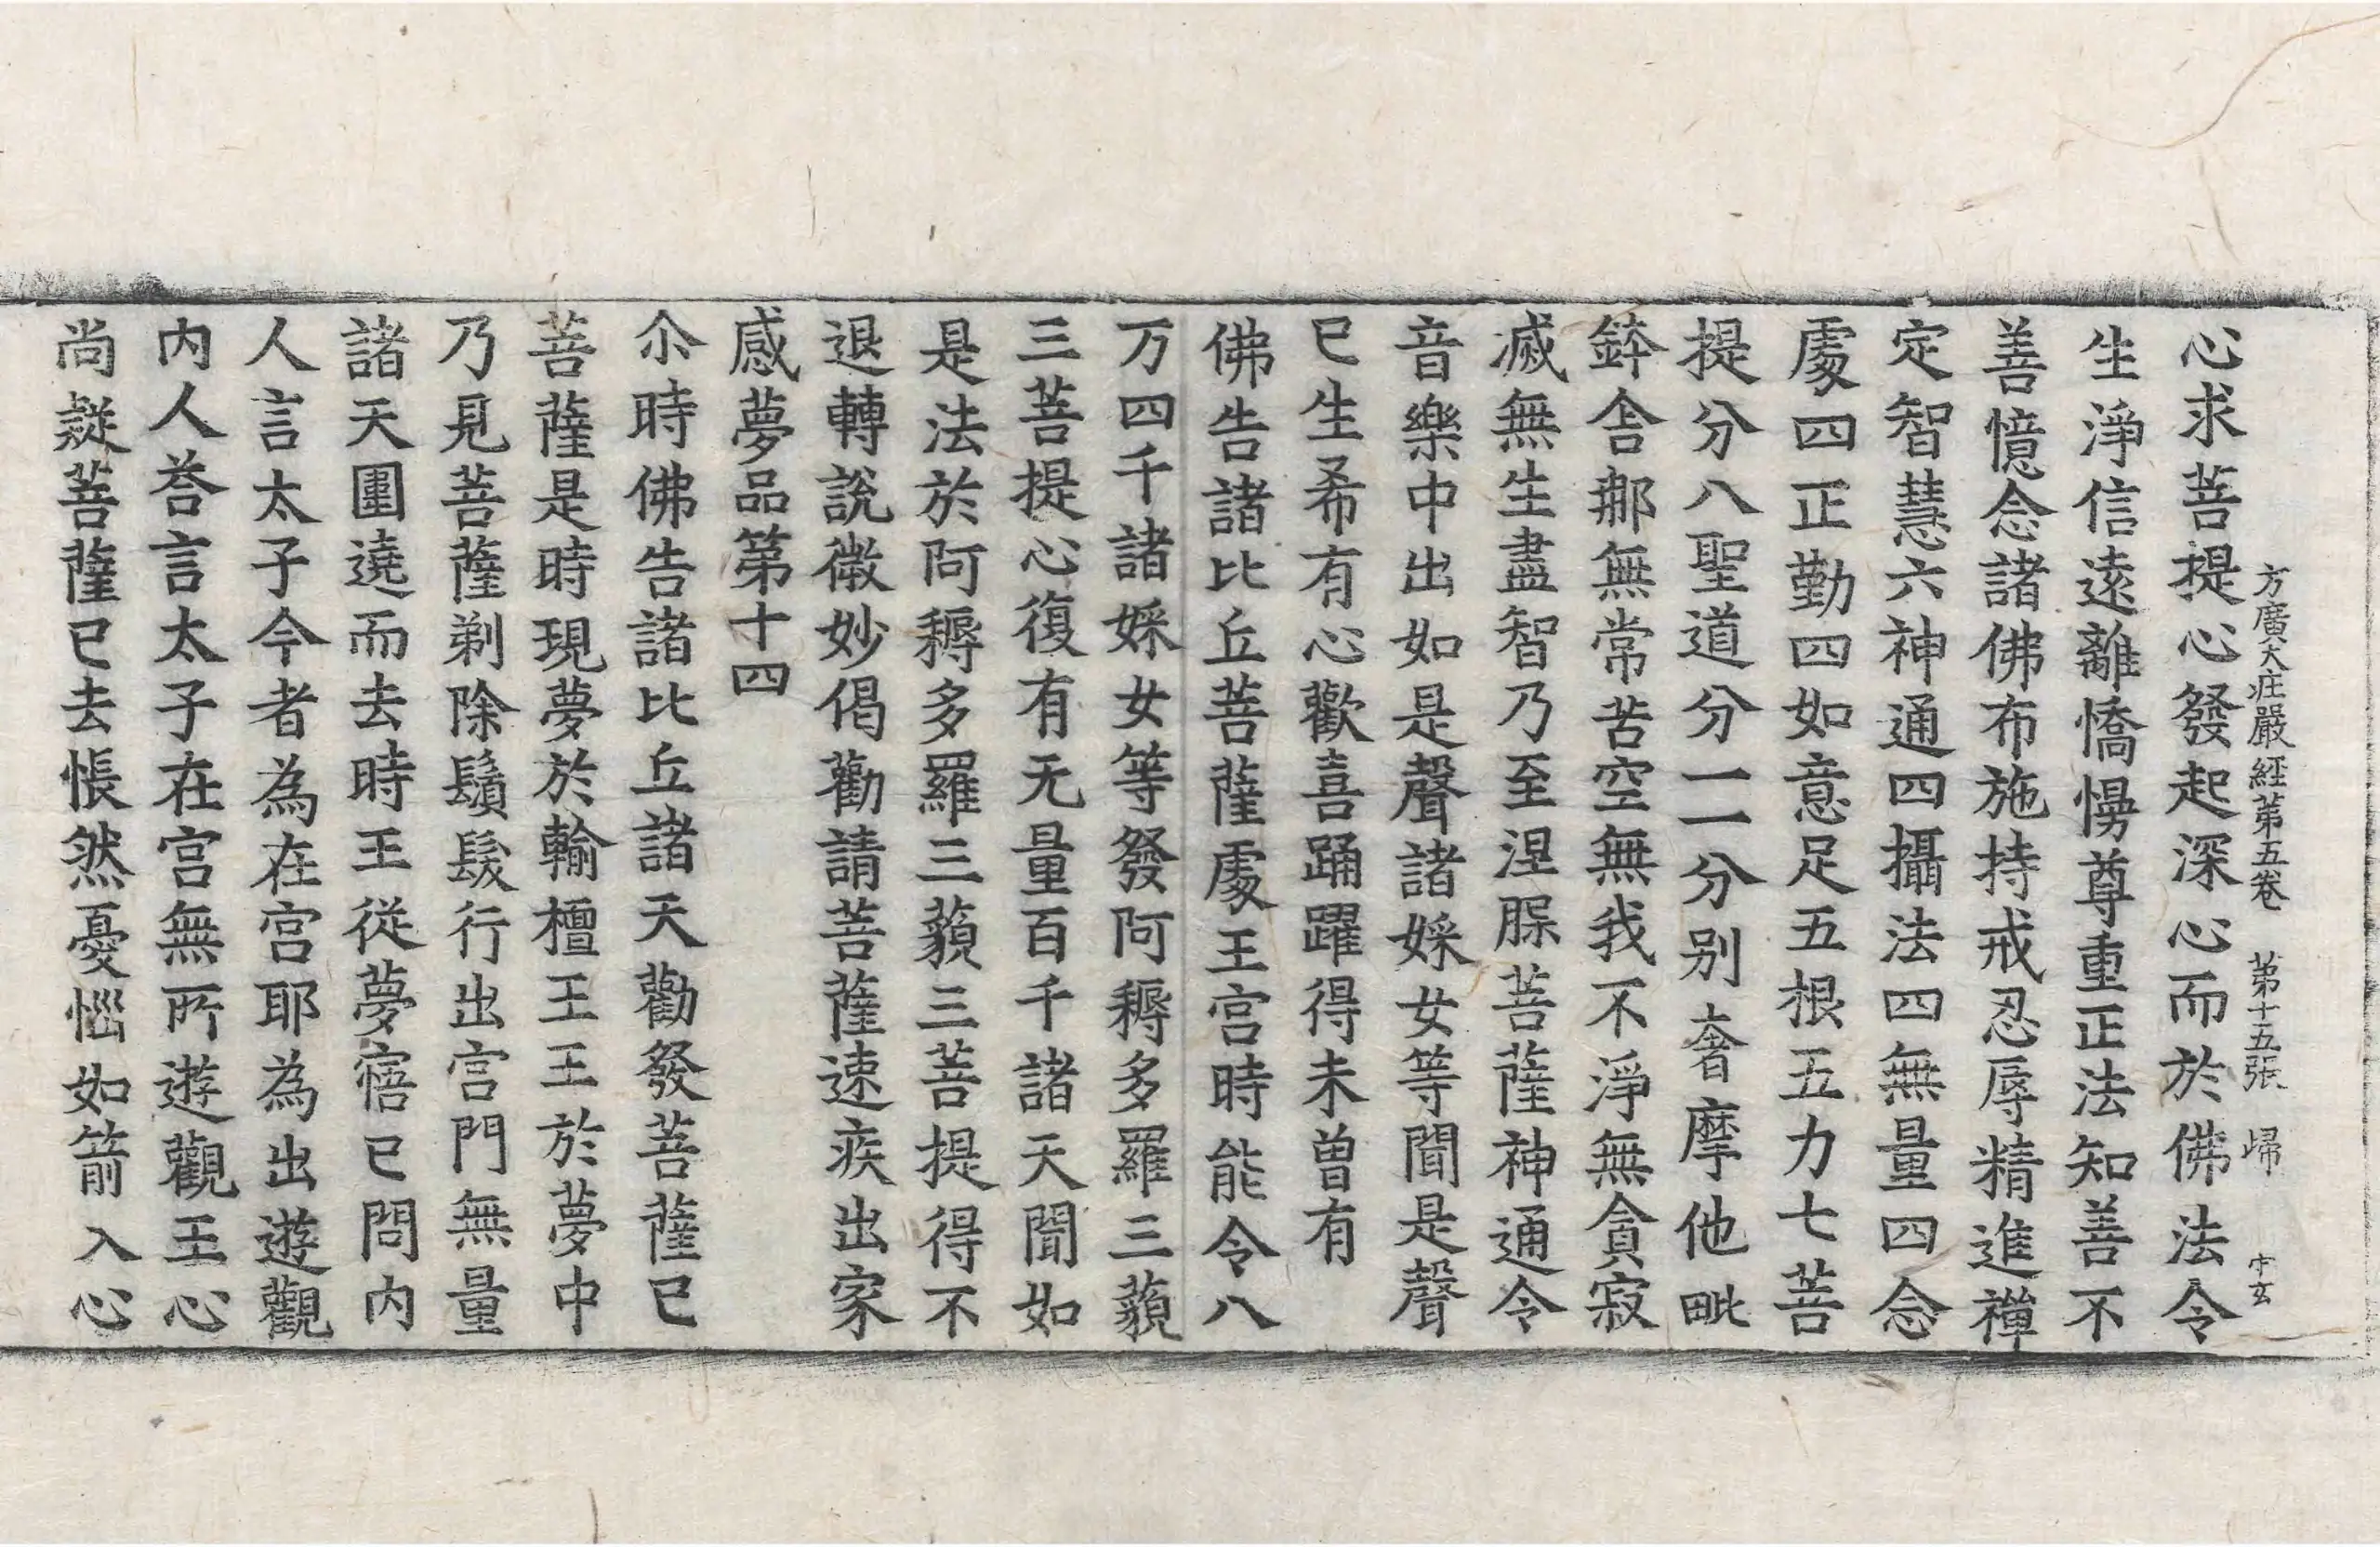 方廣大庄嚴經第五卷 第十五張 歸 中玄
心求菩提心發起深心而於佛法令
生淨信遠離憍慢尊重正法知善不
善憶念諸佛布施持戒忍辱精進禪
定智慧六神通四攝法四無量四念
處四正勤四如意足五根五力七菩
提分八聖道分一一分別奢摩他毗
鉢舍那無常苦空無我不淨無貪寂
滅無生盡智乃至涅槃菩薩神通令
音樂中出如是聲諸婇女等聞是聲
已生希有心歡喜踊躍得未曾有
佛告諸比丘菩薩處王宮時能令八
万四千諸婇女等發阿耨多羅三藐
三菩提心復有无量百千諸天聞如
是法於阿耨多羅三藐三菩提得不
退轉說微妙偈勸請菩薩速疾出家
感夢品第十四
尒時佛告諸比丘諸天勸發菩薩已
菩薩是時現夢於輸檀王王於夢中
乃見菩薩剃除鬚髮行出宮門無量
諸天圍遶而去時王從夢寤已問內
人言太子今者為在宮耶為出遊觀
內人荅言太子在宮無所遊觀王心
尚疑菩薩已去悵然憂惱如箭入心